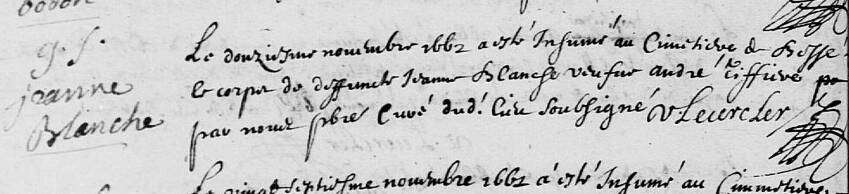 g. s.
jeanne
Blanche
Le douziesme novembre 1662 a esté Inhumé au Cimetiere de
le corps de deffuncte Jeanne Blanche veufue andré Tiffiere
par nous pbre Curé dud. lieu soubsigné VLeclercler
Le vingt septiesme novembre 1662 a esté Inhumé au Cimmetiere